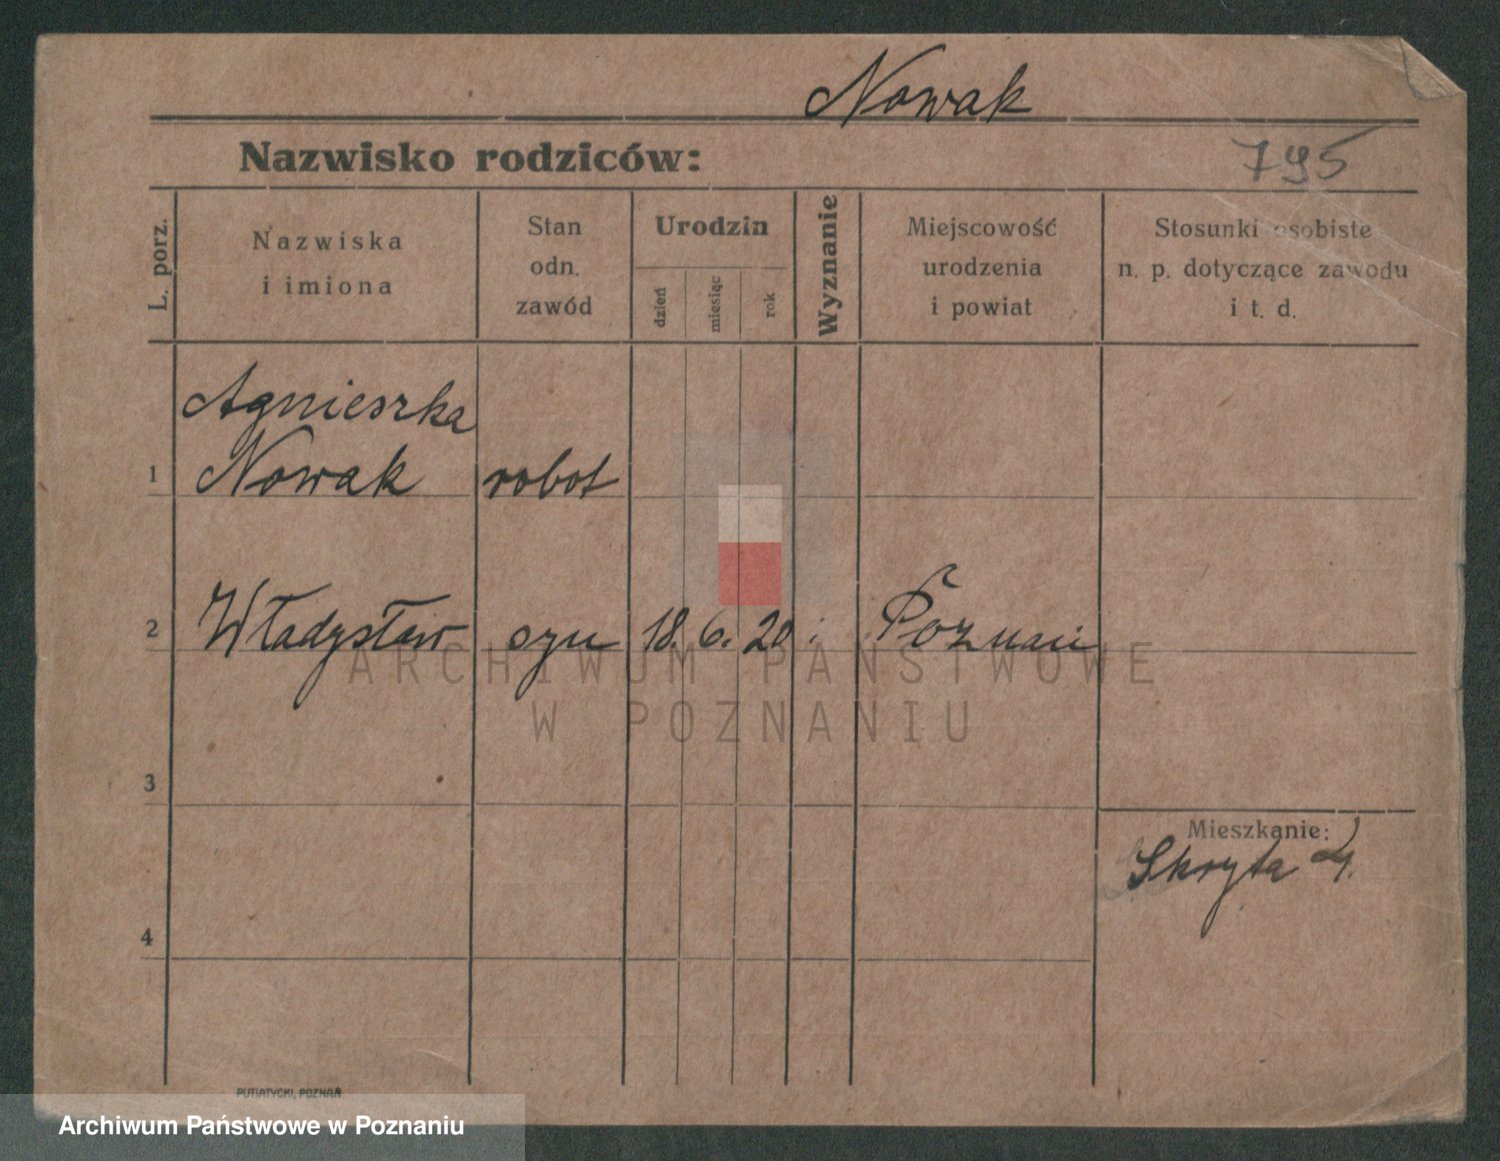 Nowak
Nazwisko rodziców:
795
L. porz.
Nazwiska
i imiona
Stan
odn.
zawód
Urodzin
dzień
miesiąc
rok
Wyznanie
Miejscowość
urodzenia
i powiat
Stosunki osobiste
n. p. dotyczące zawodu
i t. d.
Agnieszka
1 Nowak robot
2 Władysław syn 18. 6. 20 Poznań
ARCHIWUM PAŃSTWOWE
W POZNANIU
3
Mieszkanie:
Skryta 4.
4
PUTIATYCKI, POZNAŃ
Archiwum Państwowe w Poznaniu